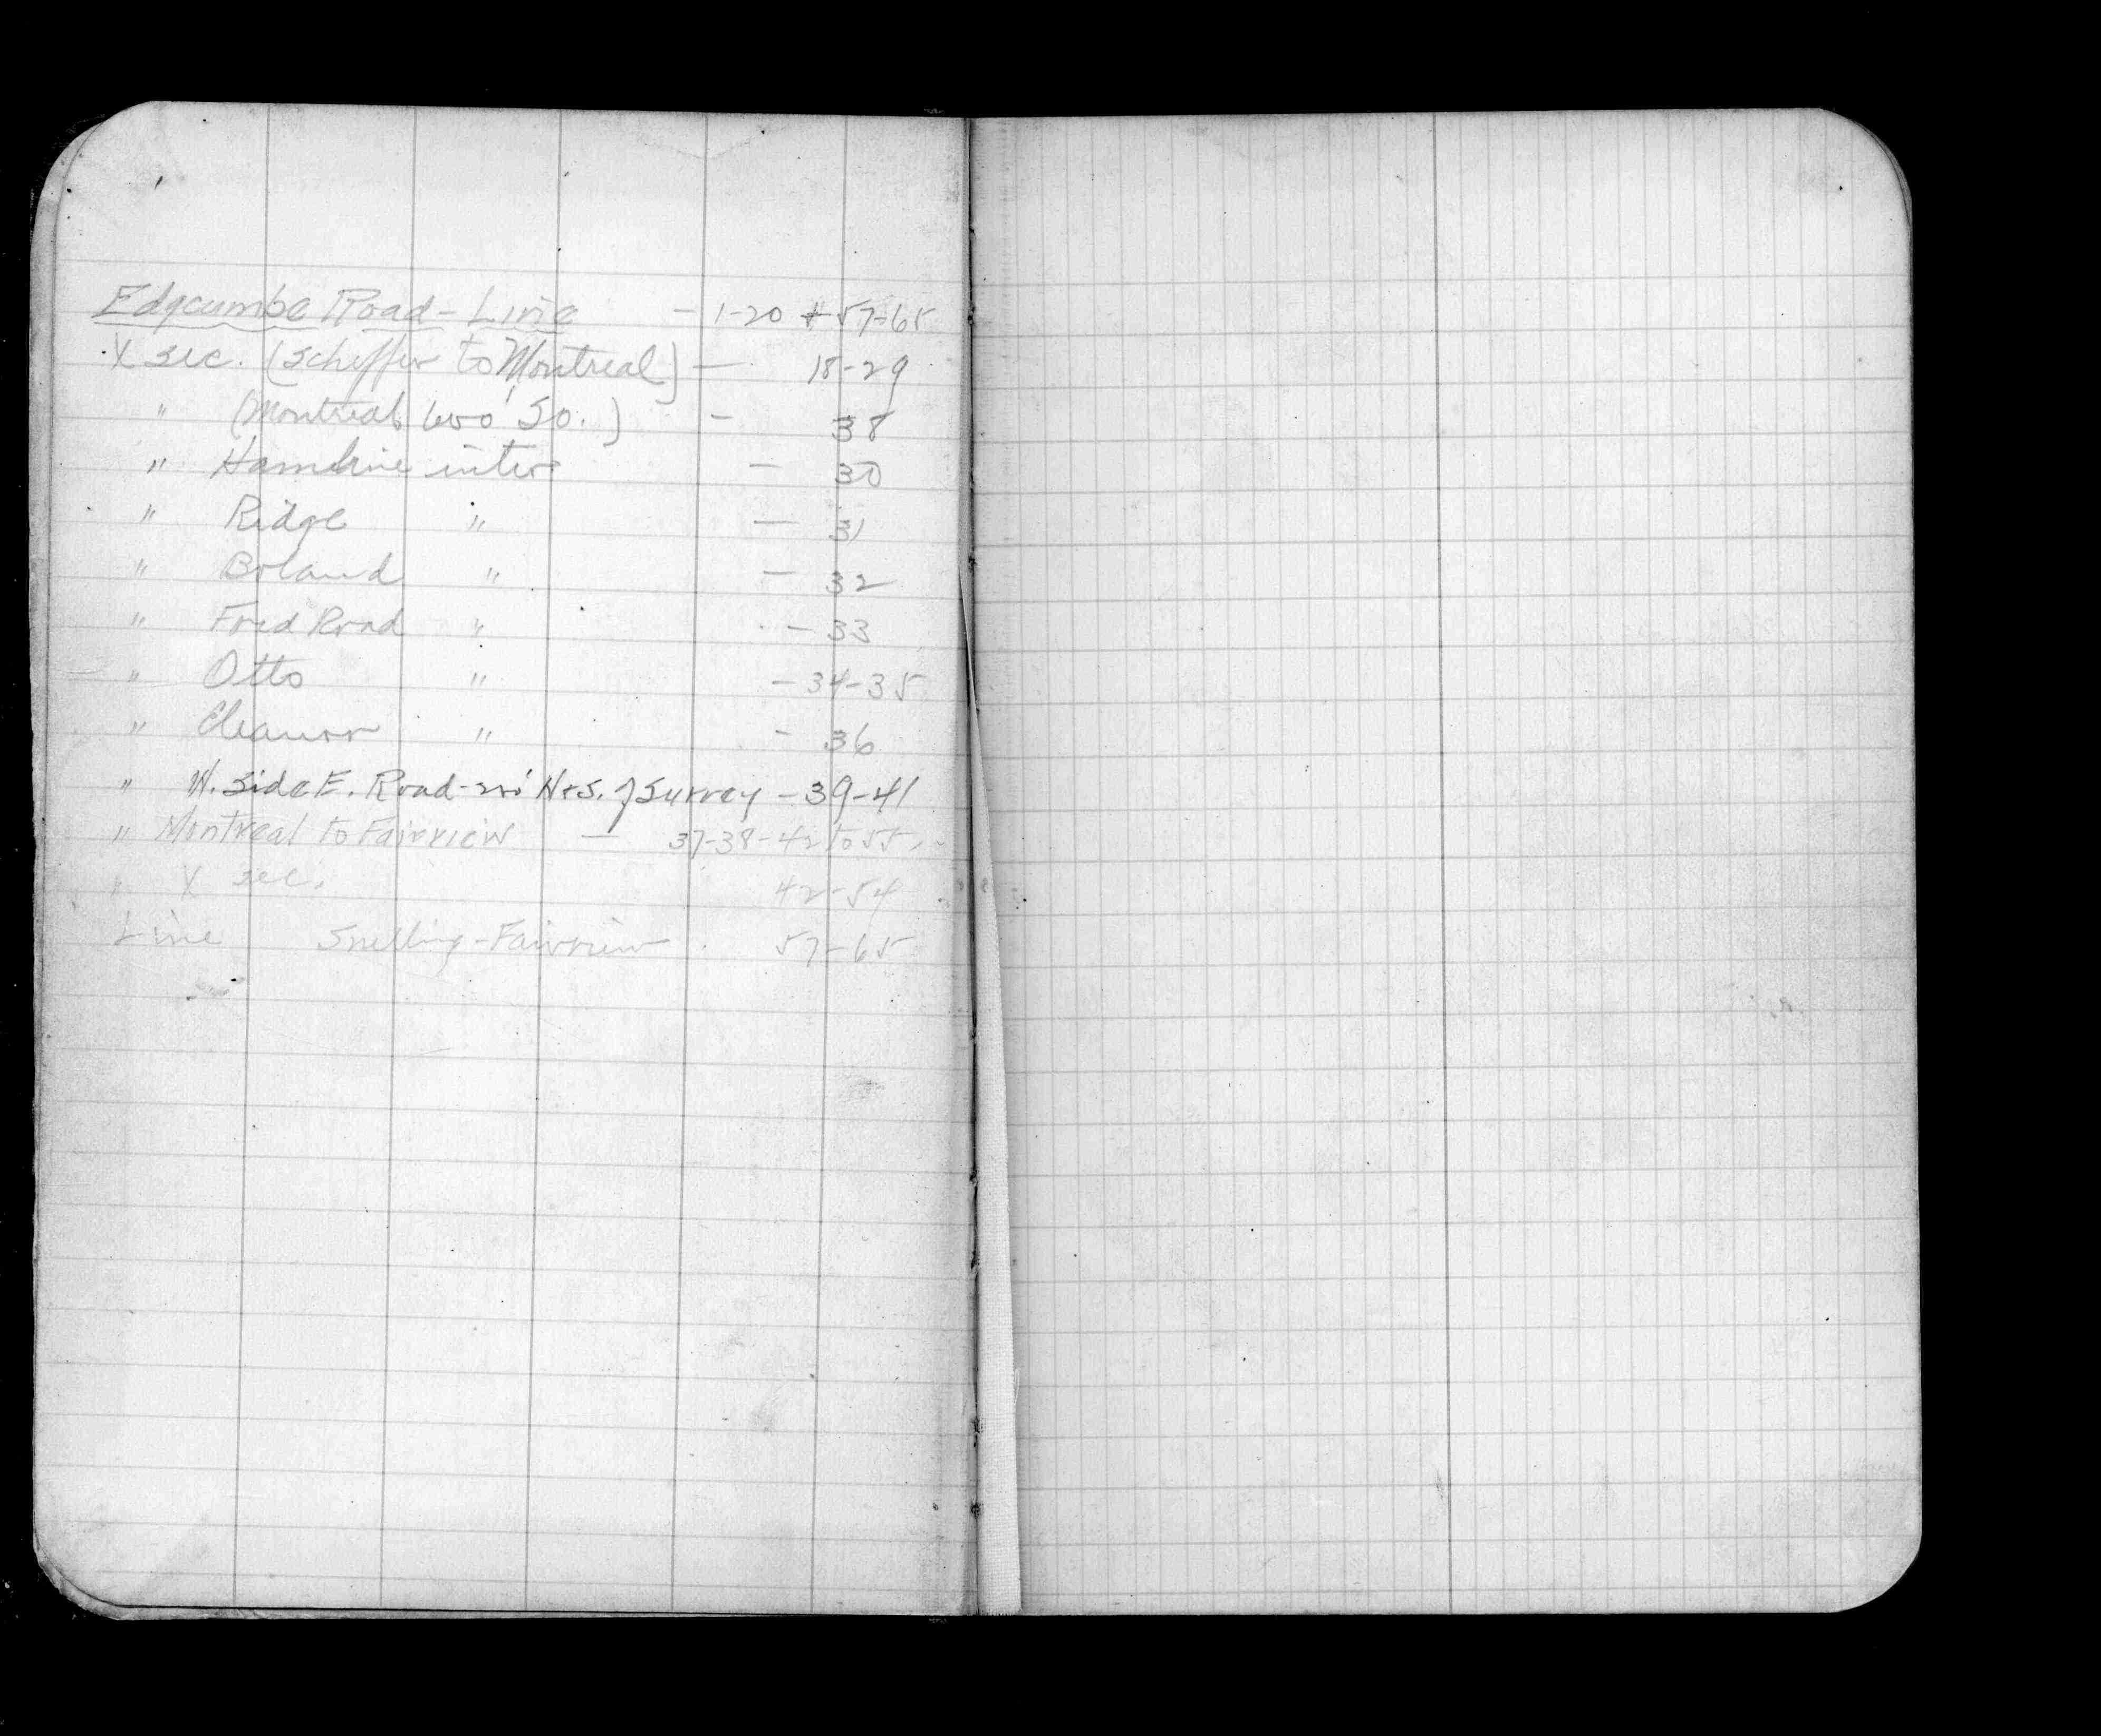 Edgcumbe Road - Line - 1-20 + 57-65
X sec. (Scheffer to Montreal) - 18-29
" (Montreal 600' So.) - 38
" Hamline inter - 30
" Ridge " - 31
" Boland " - 32
" Ford Road " - 33
" Otto " - 34-35
" Eleanor " - 36
" W. Side E. Road - 200' N & S. of Survey - 39-41
" Montreal to Fairview - 37-38-42 to 55
" X sec. 42-54
Line Snelling-Fairview. 57-65